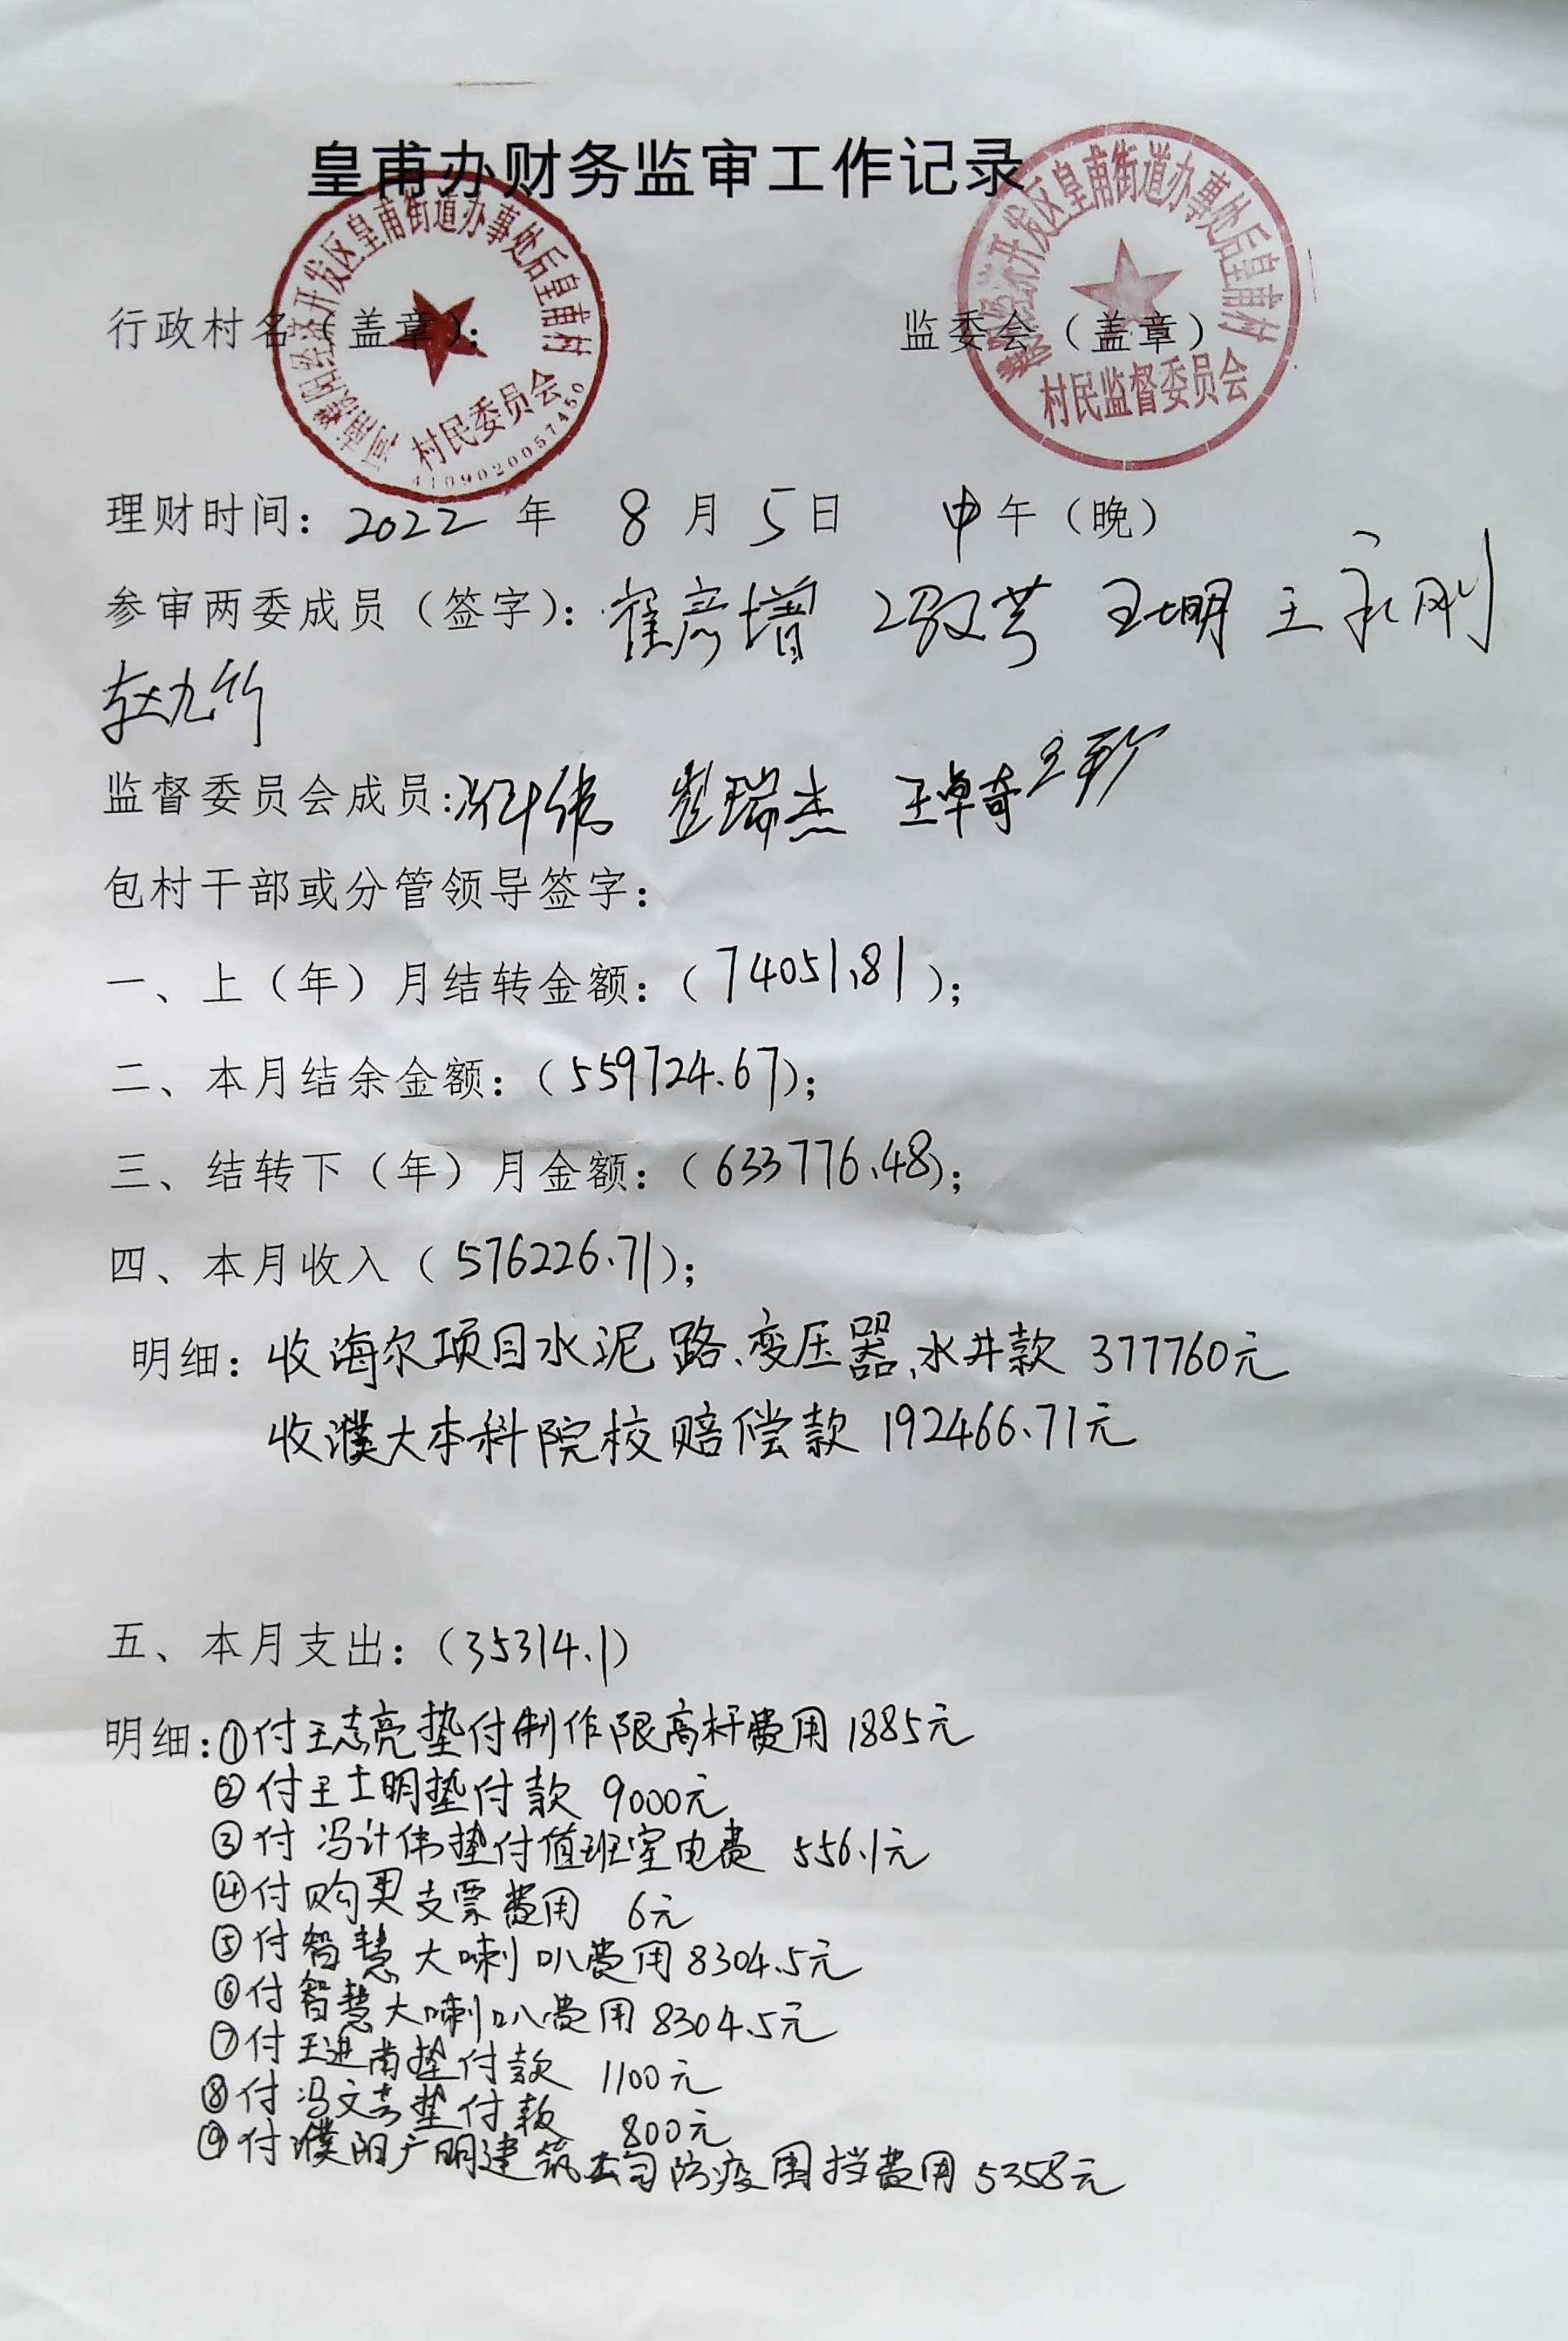 皇甫办财务监审工作记录
河南濮阳经济开发区皇甫街道办事处后皇甫村
村民委员会
4109020057450
濮阳经济开发区皇甫街道办事处后皇甫村
村民监督委员会
行政村名（盖章）： 监委会（盖章）
理财时间：2022 年 8 月 5 日 中午（晚）
参审两委成员（签字）：崔彦增 冯文芳 王士明 王永刚
赵九竹
监督委员会成员:冯计伟 彭瑞杰 王卓奇
包村干部或分管领导签字：
一、上（年）月结转金额：（74051.81）；
二、本月结余金额：（559724.67）；
三、结转下（年）月金额：（633776.48）；
四、本月收入（576226.71）；
明细：收海尔项目水泥路、变压器、水井款 377760元
收濮大本科院校赔偿款 192466.71元
五、本月支出：（35314.1）
明细：①付王志亮垫付制作限高杆费用 1885元
②付王士明垫付款 9000元
③付冯计伟垫付值班室电费 556.1元
④付购买支票费用 6元
⑤付智慧大喇叭费用 8304.5元
⑥付智慧大喇叭费用 8304.5元
⑦付王进南垫付款 1100元
⑧付冯文芳垫付款 800元
⑨付濮阳广明建筑公司防疫围挡费用 5358元